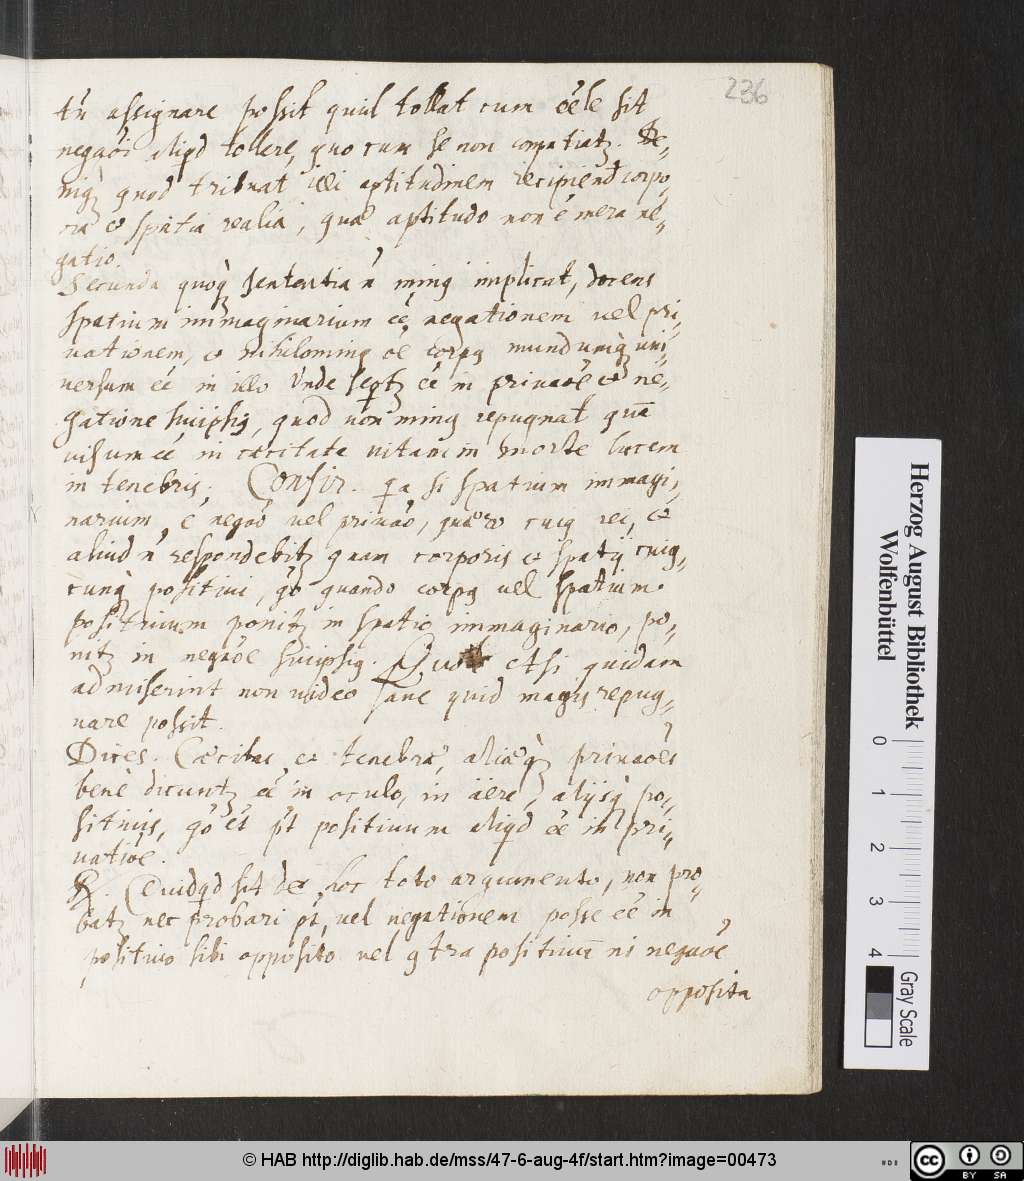 236
tñ assignare possit quid tollat cum oẽle sit
negaõi aliqd tollere, quo cum se non compatiatz. De-
niqz quod tribuat illi aptitudinem recipiend corpo
ra et spatia realia, quae aptitudo non ẽ mera ne-
gatio.
Secunda quoqz sententia ñ ming implicat, docens
spatium immaginarium eẽ negationem vel pri-
uationem, et nihiloming oẽ corpg mundumqz uni-
versum eẽ in illo Unde seqtz eẽ in priuaõe et ne-
gatione suiipsig, quod non ming repugnat quã
visum eẽ in cecitate vitam in morte lucem
in tenebris. Confir. qa si spatium immagi-
narium ẽ negaõ vel priuaõ, quaero cuig rei, et
aliud ñ respondebitz quam corporis et spatij cuig-
cunqz positiui, gõ quando corpg vel spatium
positiuum ponitz in spatio immaginario, po-
nitz in negaõe suiipsig. Quod etsi quidam
admiserint non video sane quid magis repug-
nare possit.
Dices. Caecitas et tenebrae, aliaeqz priuaoẽs
benè dicuntz eẽ in oculo, in äere, alijsqz po-
sitiuis, gõ et pt positiuum aliqd eẽ in pri-
uatioẽ.
R. Quidqd sit de hoc toto argumento, non pro-
batz nec probari pt, vel negationem posse eẽ in
positiuo sibi opposito vel gtra positiuũ ni negaoẽ
opposita
Herzog August Bibliothek
Wolfenbüttel
0 1 2 3 4
Gray Scale
© HAB http://diglib.hab.de/mss/47-6-aug-4f/start.htm?image=00473
cc BY SA